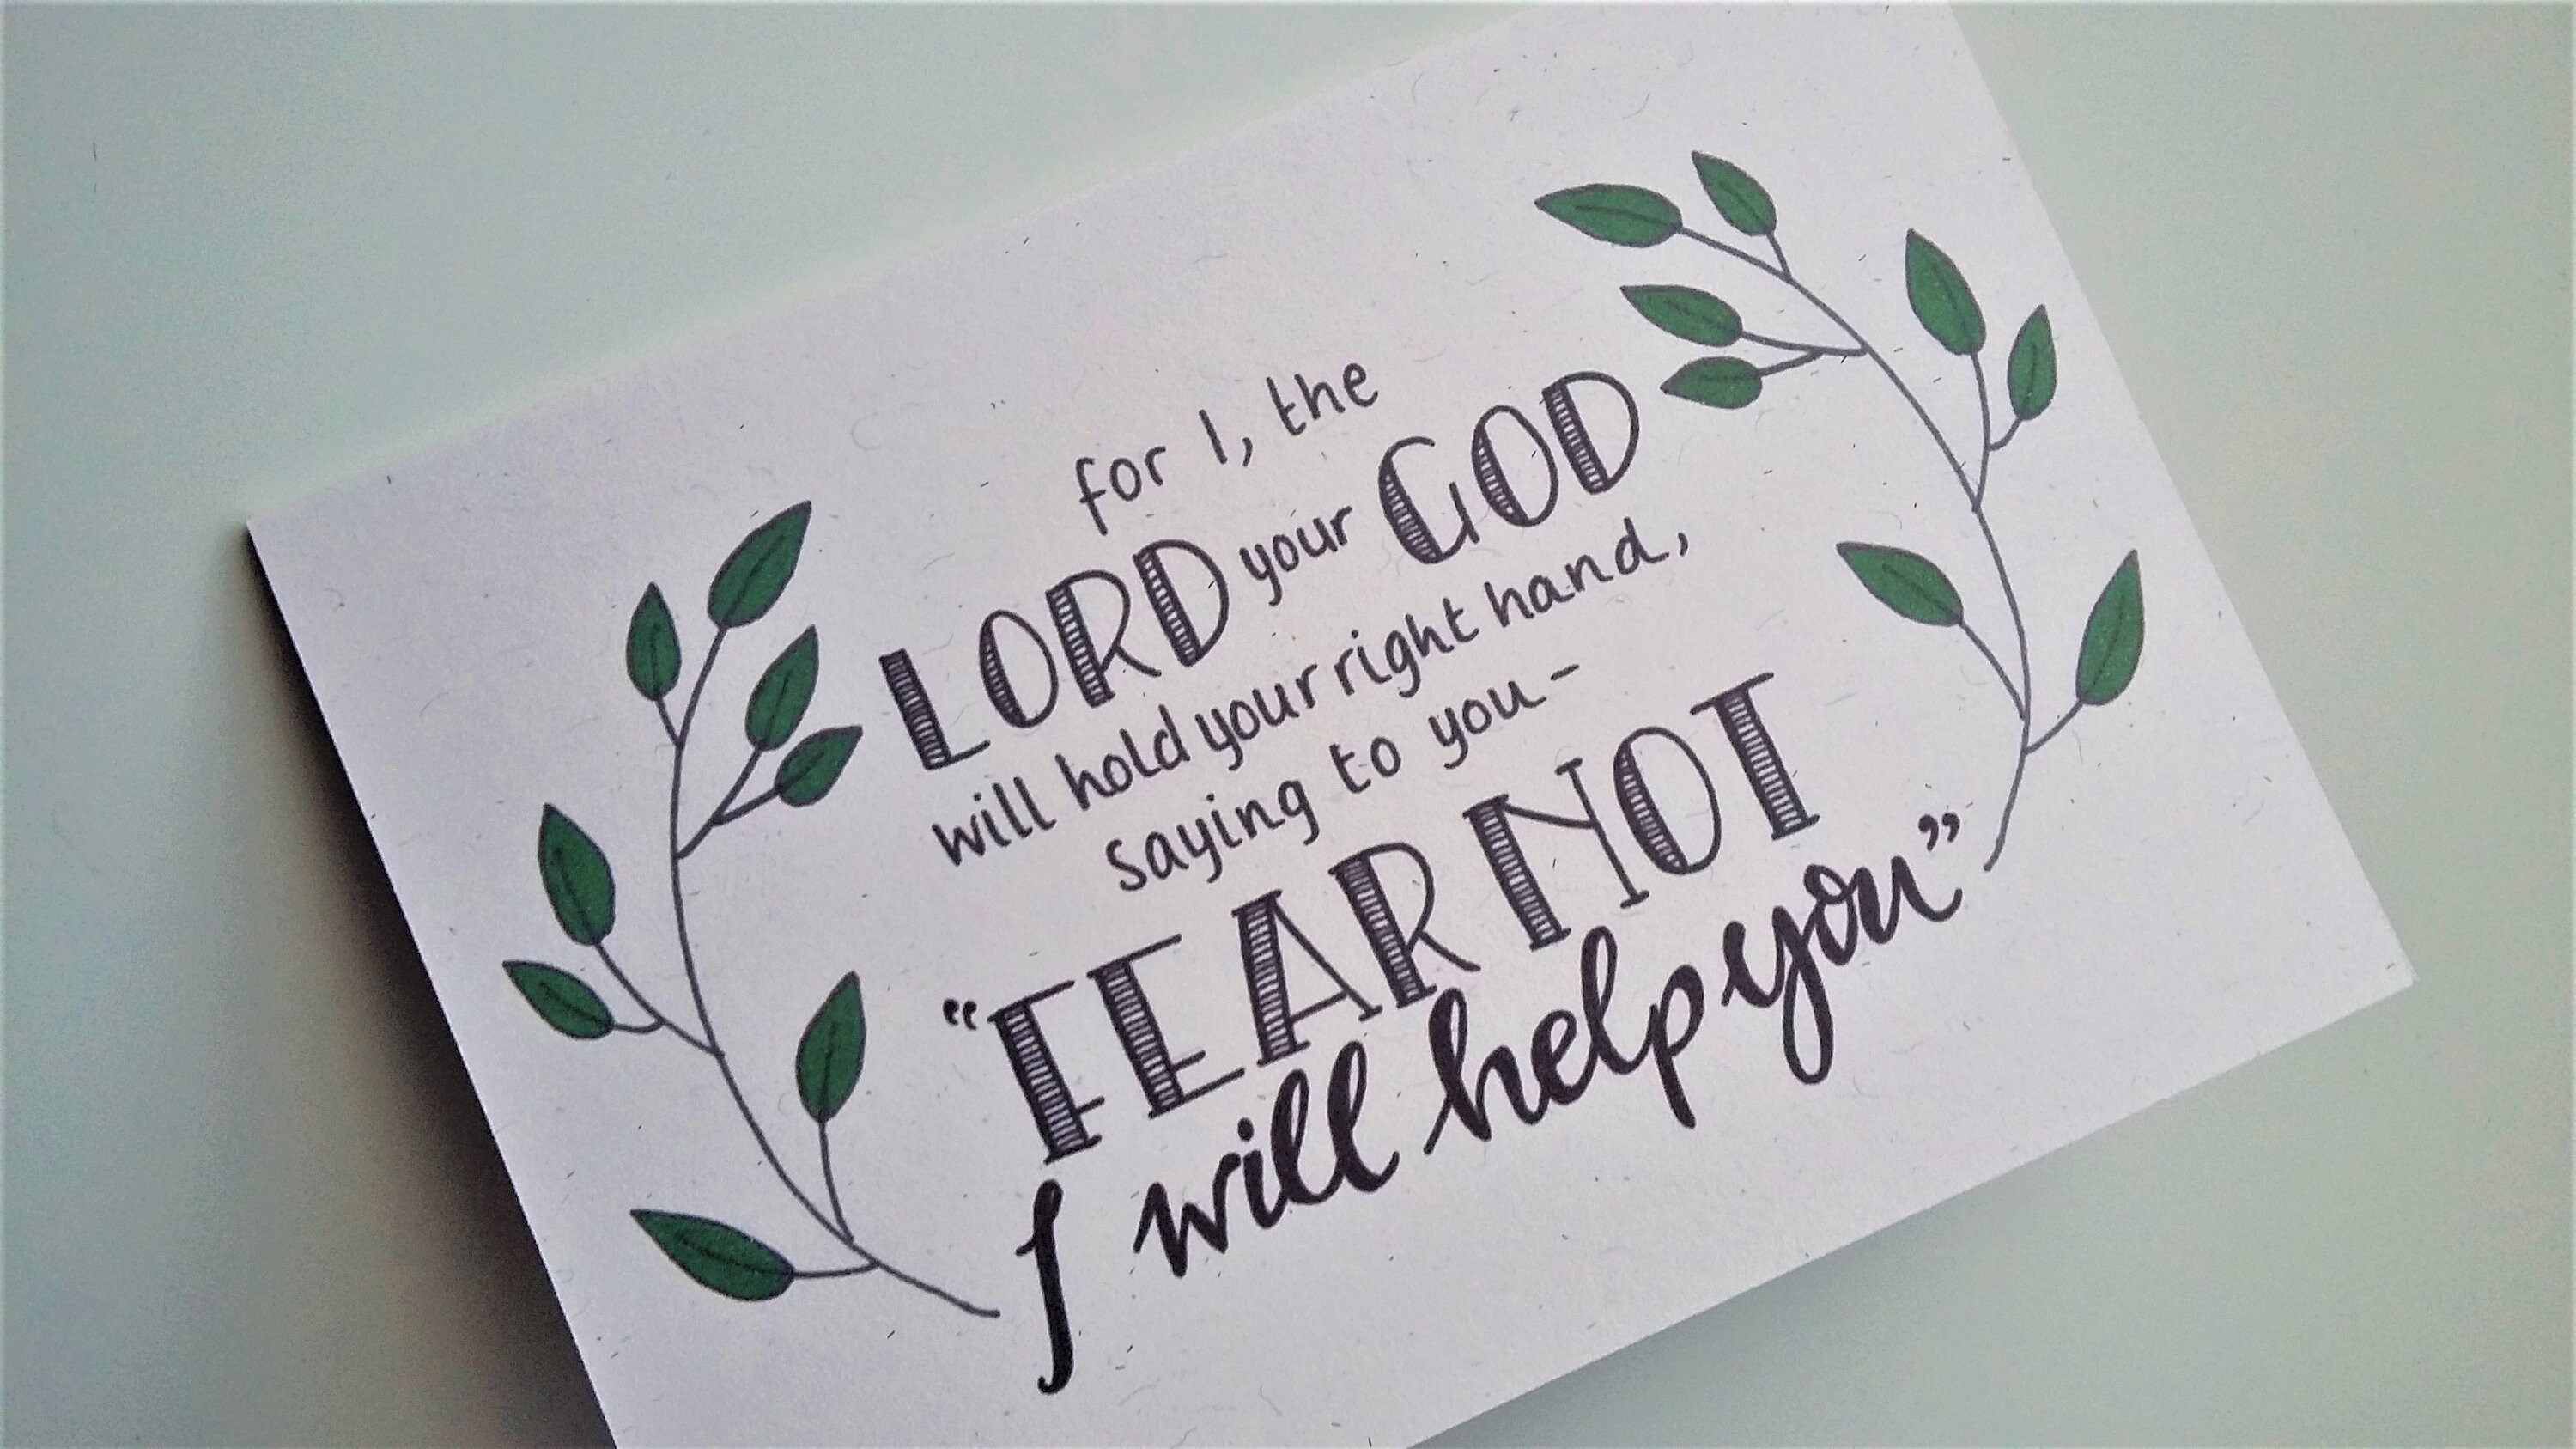 for I, the
LORD your GOD
will hold your right hand,
saying to you -
"FEAR NOT
I will help you"